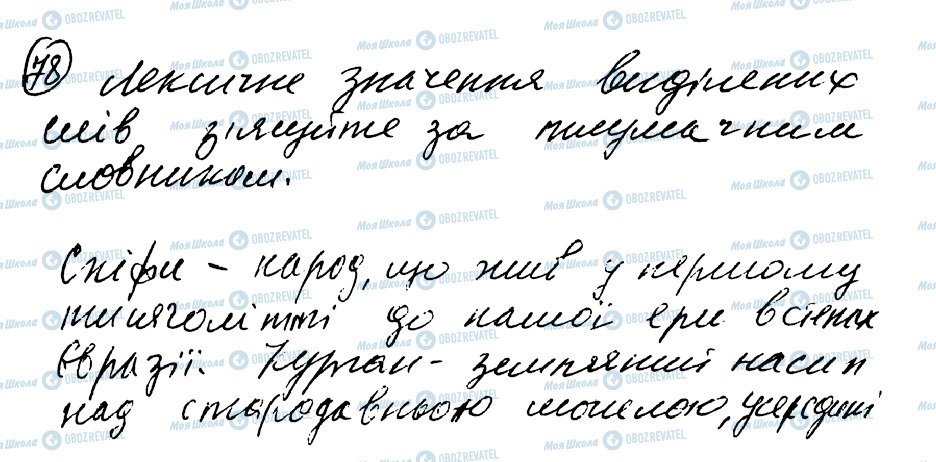 78 Лексичне значення виділених
слів з'ясуйте за тлумачним
словником.
Скіфи - народ, що жив у першому
тисячолітті до нашої ери в степах
Євразії. Курган - земляний насип
над стародавньою могилою, усередині